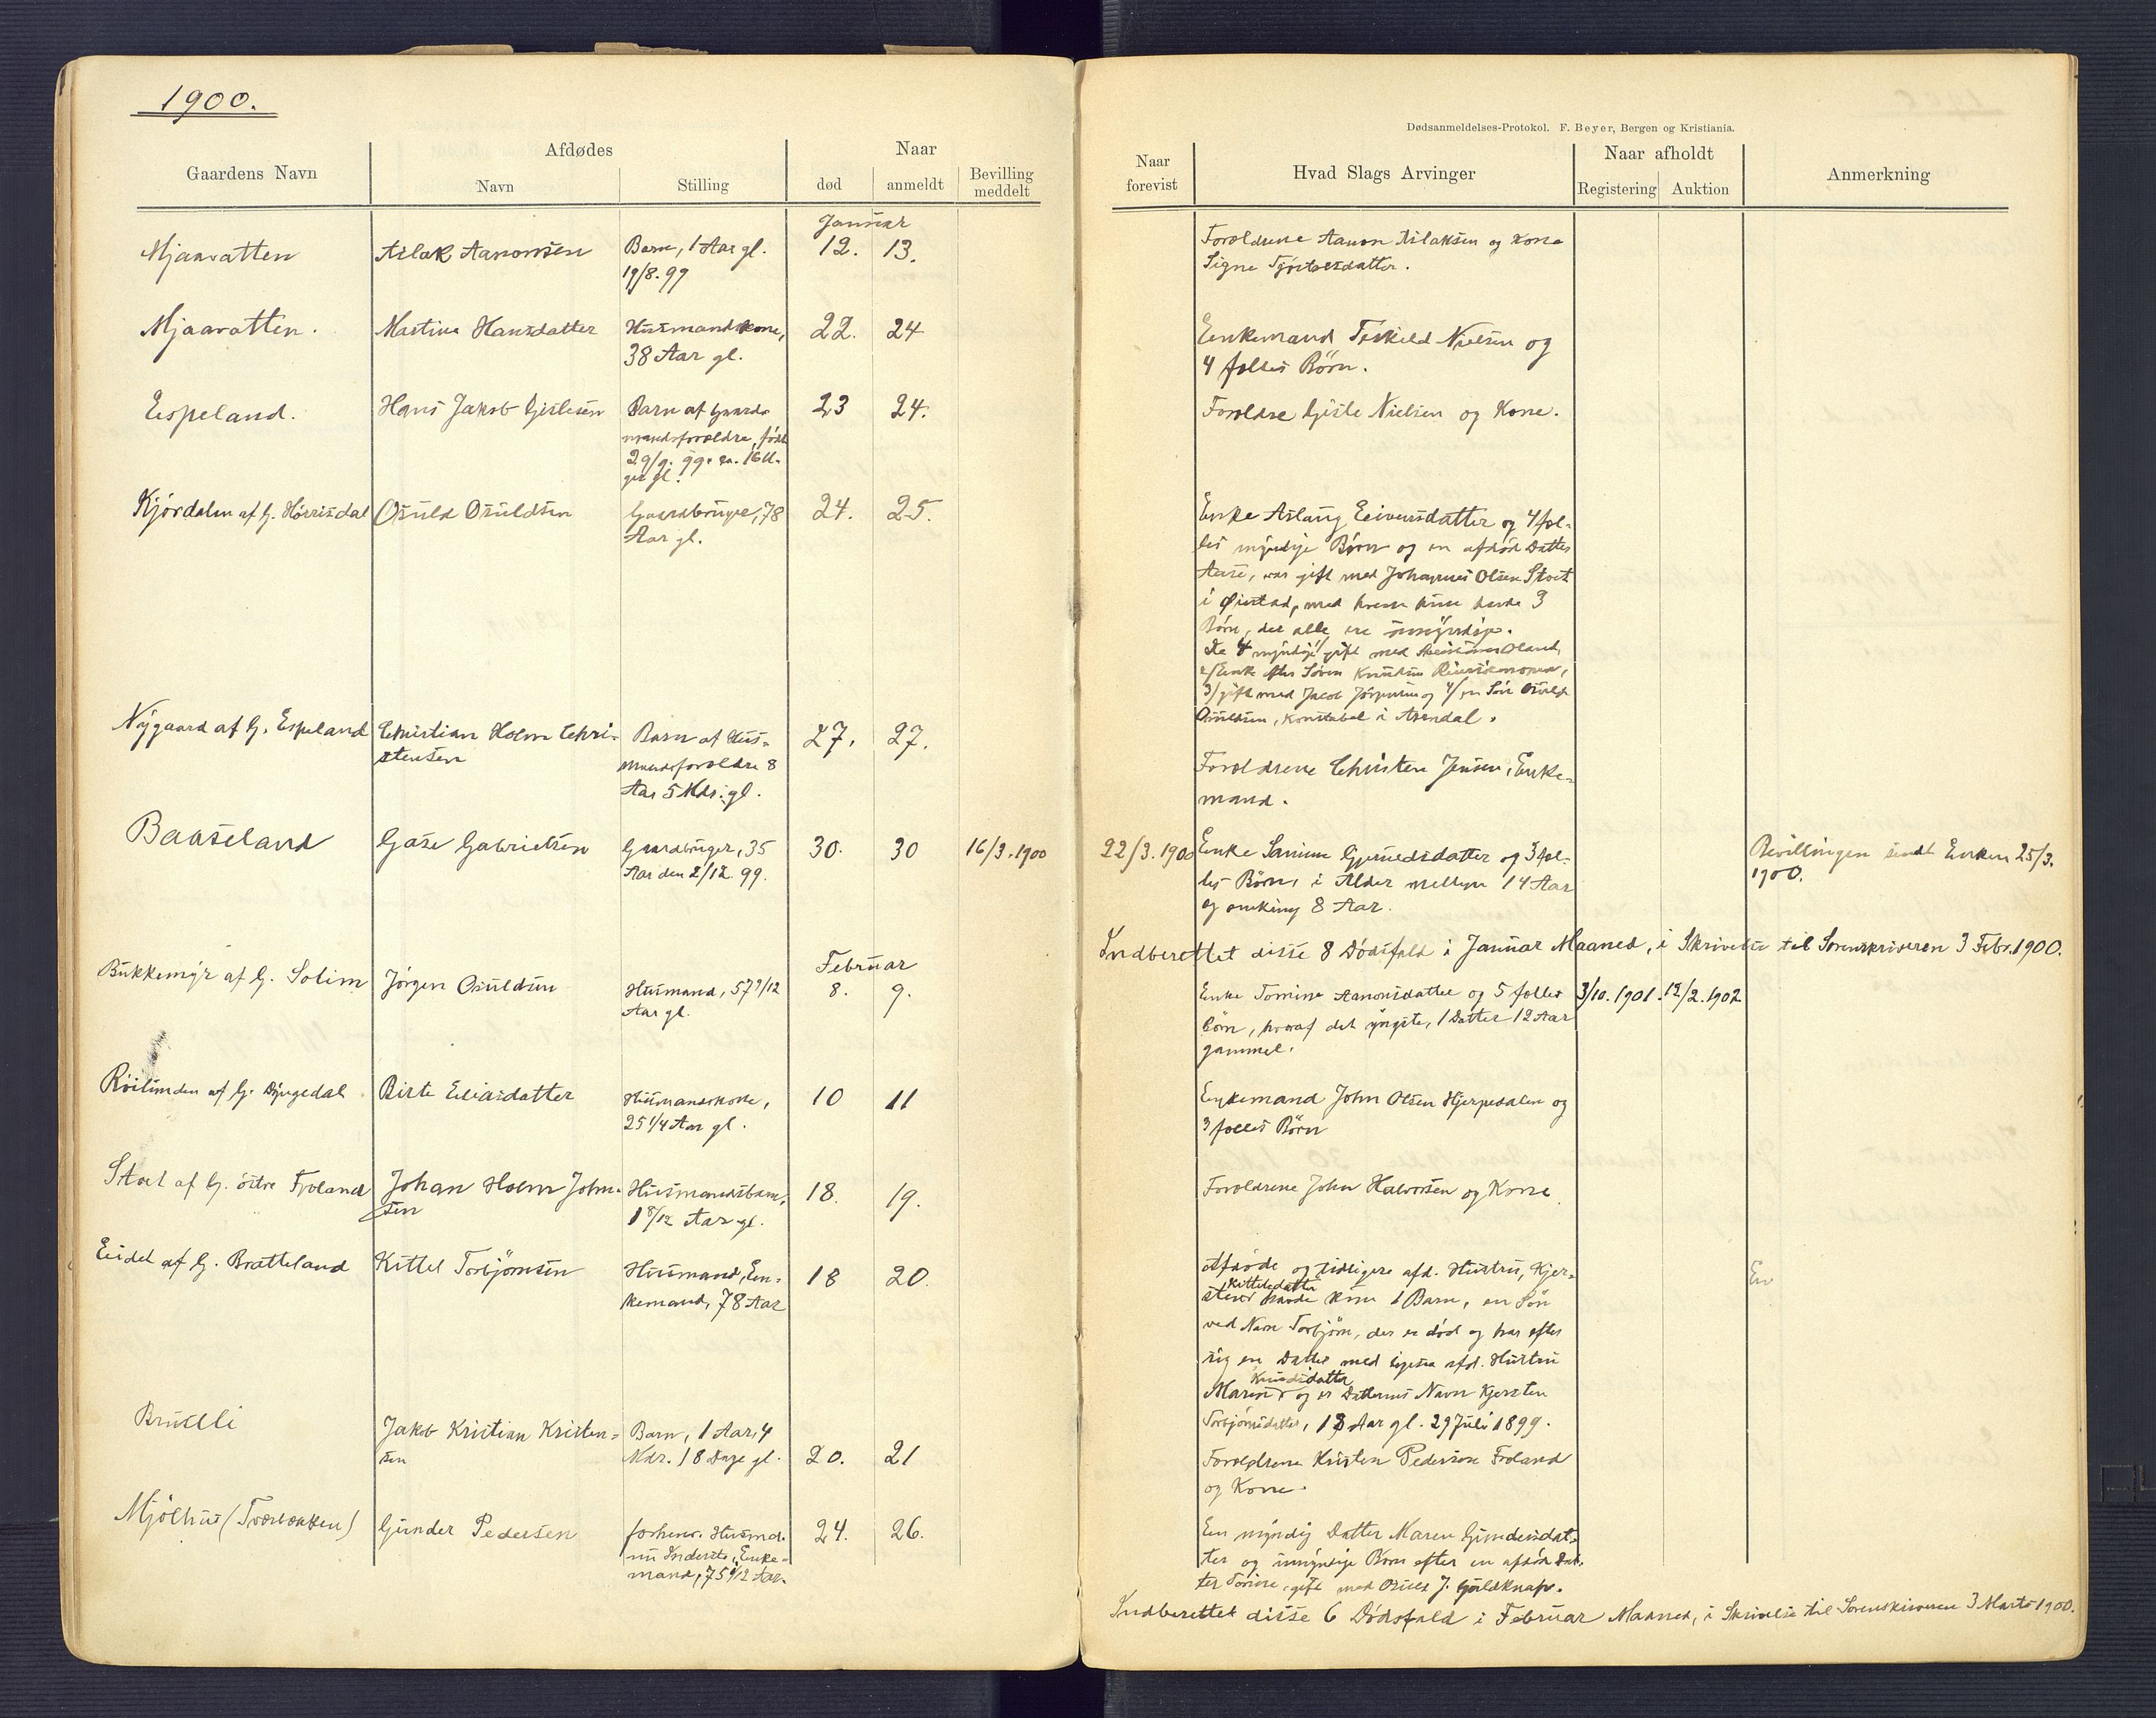 1900.
Dødsanmeldelses-Protokol. F. Beyer, Bergen og Kristiania.
Gaardens Navn
Afdødes
Navn
Stilling
Naar
død
anmeldt
Bevilling
meddelt
Naar
forevist
Hvad Slags Arvinger
Naar afholdt
Registering
Auktion
Anmerkning
Januar
Mjaavatten
Aslak Aanonsen
Barn, 1 Aar gl.
19/8.99
12.
13.
Forældrene Aanon Aslaksen og Kone
Signe
Mjaavatten.
Martine Hansdatter
Husmandskone,
38 Aar gl.
22.
24
Enkemand Terkild Nielsen og
4 fælles Børn.
Espeland.
Hans Jakob Gislesen
Barn af Gaard-
mandsforældre, født
29/9. 99. ca. 16 U-
ger gl.
23
24.
Forældre Gisle Nielsen og Kone.
Kjørdalen af G. Hørrisdal
Osuld Osuldsen
Gaardbruger, 78
Aar gl.
24.
25.
Enke Aslaug Eivindsdatter og 4 fæl-
les myndige Børn og en afdød Datter
Aase, var gift med Johannes Olsen Stoet
i Øiestad, med hvem hun havde 3
Børn, der alle ere umyndige.
De 4 myndige gift med Oland,
2/ Enke efter Søren Knudsen
3/ gift med Jacob Jørgensen og 4/ en Søn Osuld
Osuldsen, Konstabel i Arendal.
Nygaard af G. Espeland
Christian Holm Chri-
stensen
Barn af Hus-
mandsforældre 8
Aar 5 Mdr. gl.
27.
27.
Forældrene Christen Jensen, Enke-
mand.
Baaseland
Gase Gabrielsen
Gaardbruger, 35
Aar den 2/12 99.
30.
30
16/3.1900
22/3.1900
Enke Gjeruldsdatter og 3 fæl-
les Børn, i Alder mellem 14 Aar
og omkring 8 Aar.
Bevillingen sendt Enken 25/3.
1900.
Indberettet disse 8 Dødsfald i Januar Maaned, i Skrivelse til Sorenskriveren 3 Febr. 1900.
Februar
Bukkemyr af G. Solim
Jørgen Osuldsen
Husmand, 57 9/12
Aar gl.
8.
9.
Enke Tomine Aanonsdatter og 5 fælles
Børn, hvoraf det yngste, 1 Datter 12 Aar
gammel.
3/10. 1901.
12/2. 1902
af G. Dyngedal
Birte Eliasdatter
Husmandskone,
25 1/4 Aar gl.
10
11
Enkemand John Olsen Hjerpedalen og
3 fælles Børn
Stoet af G. østre Froland
Johan Holm John-
sen
Husmandsbarn,
1 8/12 Aar gl.
18.
19.
Forældrene John Halvorsen og Kone.
Eidet af G. Bratteland
Kittel Torbjørnsen
Husmand, En-
kemand, 78 Aar
18
20.
Afdøde og tidligere afd. Hustru, Kjer-
sten Kittelsdatter havde kun 1 Barn, en Søn
ved Navn Torbjørn, der er død og har efter
sig en Datter med ligesaa afd. Hustru
Maren Knudsdatter og er Datterens Navn Kjersten
Torbjørnsdatter, 13 Aar gl. 29 Juli 1899.
En
Bruelli
Jakob Kristian Kristen-
sen
Barn, 1 Aar, 4
Mdr. 18 Dage gl.
20.
21
Forældrene Kristen Pedersen Froland
og Kone.
Mjølhus (Tværbækken)
Gunder Pedersen
forhenv. Husmd.
nu Inderste, Enke-
mand, 75 9/12 Aar.
24.
26.
En myndig Datter Maren Gundersdat-
ter og umyndige Børn efter en afdød Dat-
ter Torine, gift med Osuld J. Guldknap.
Indberettet disse 6 Dødsfald i Februar Maaned, i Skrivelse til Sorenskriveren 3 Marts 1900.